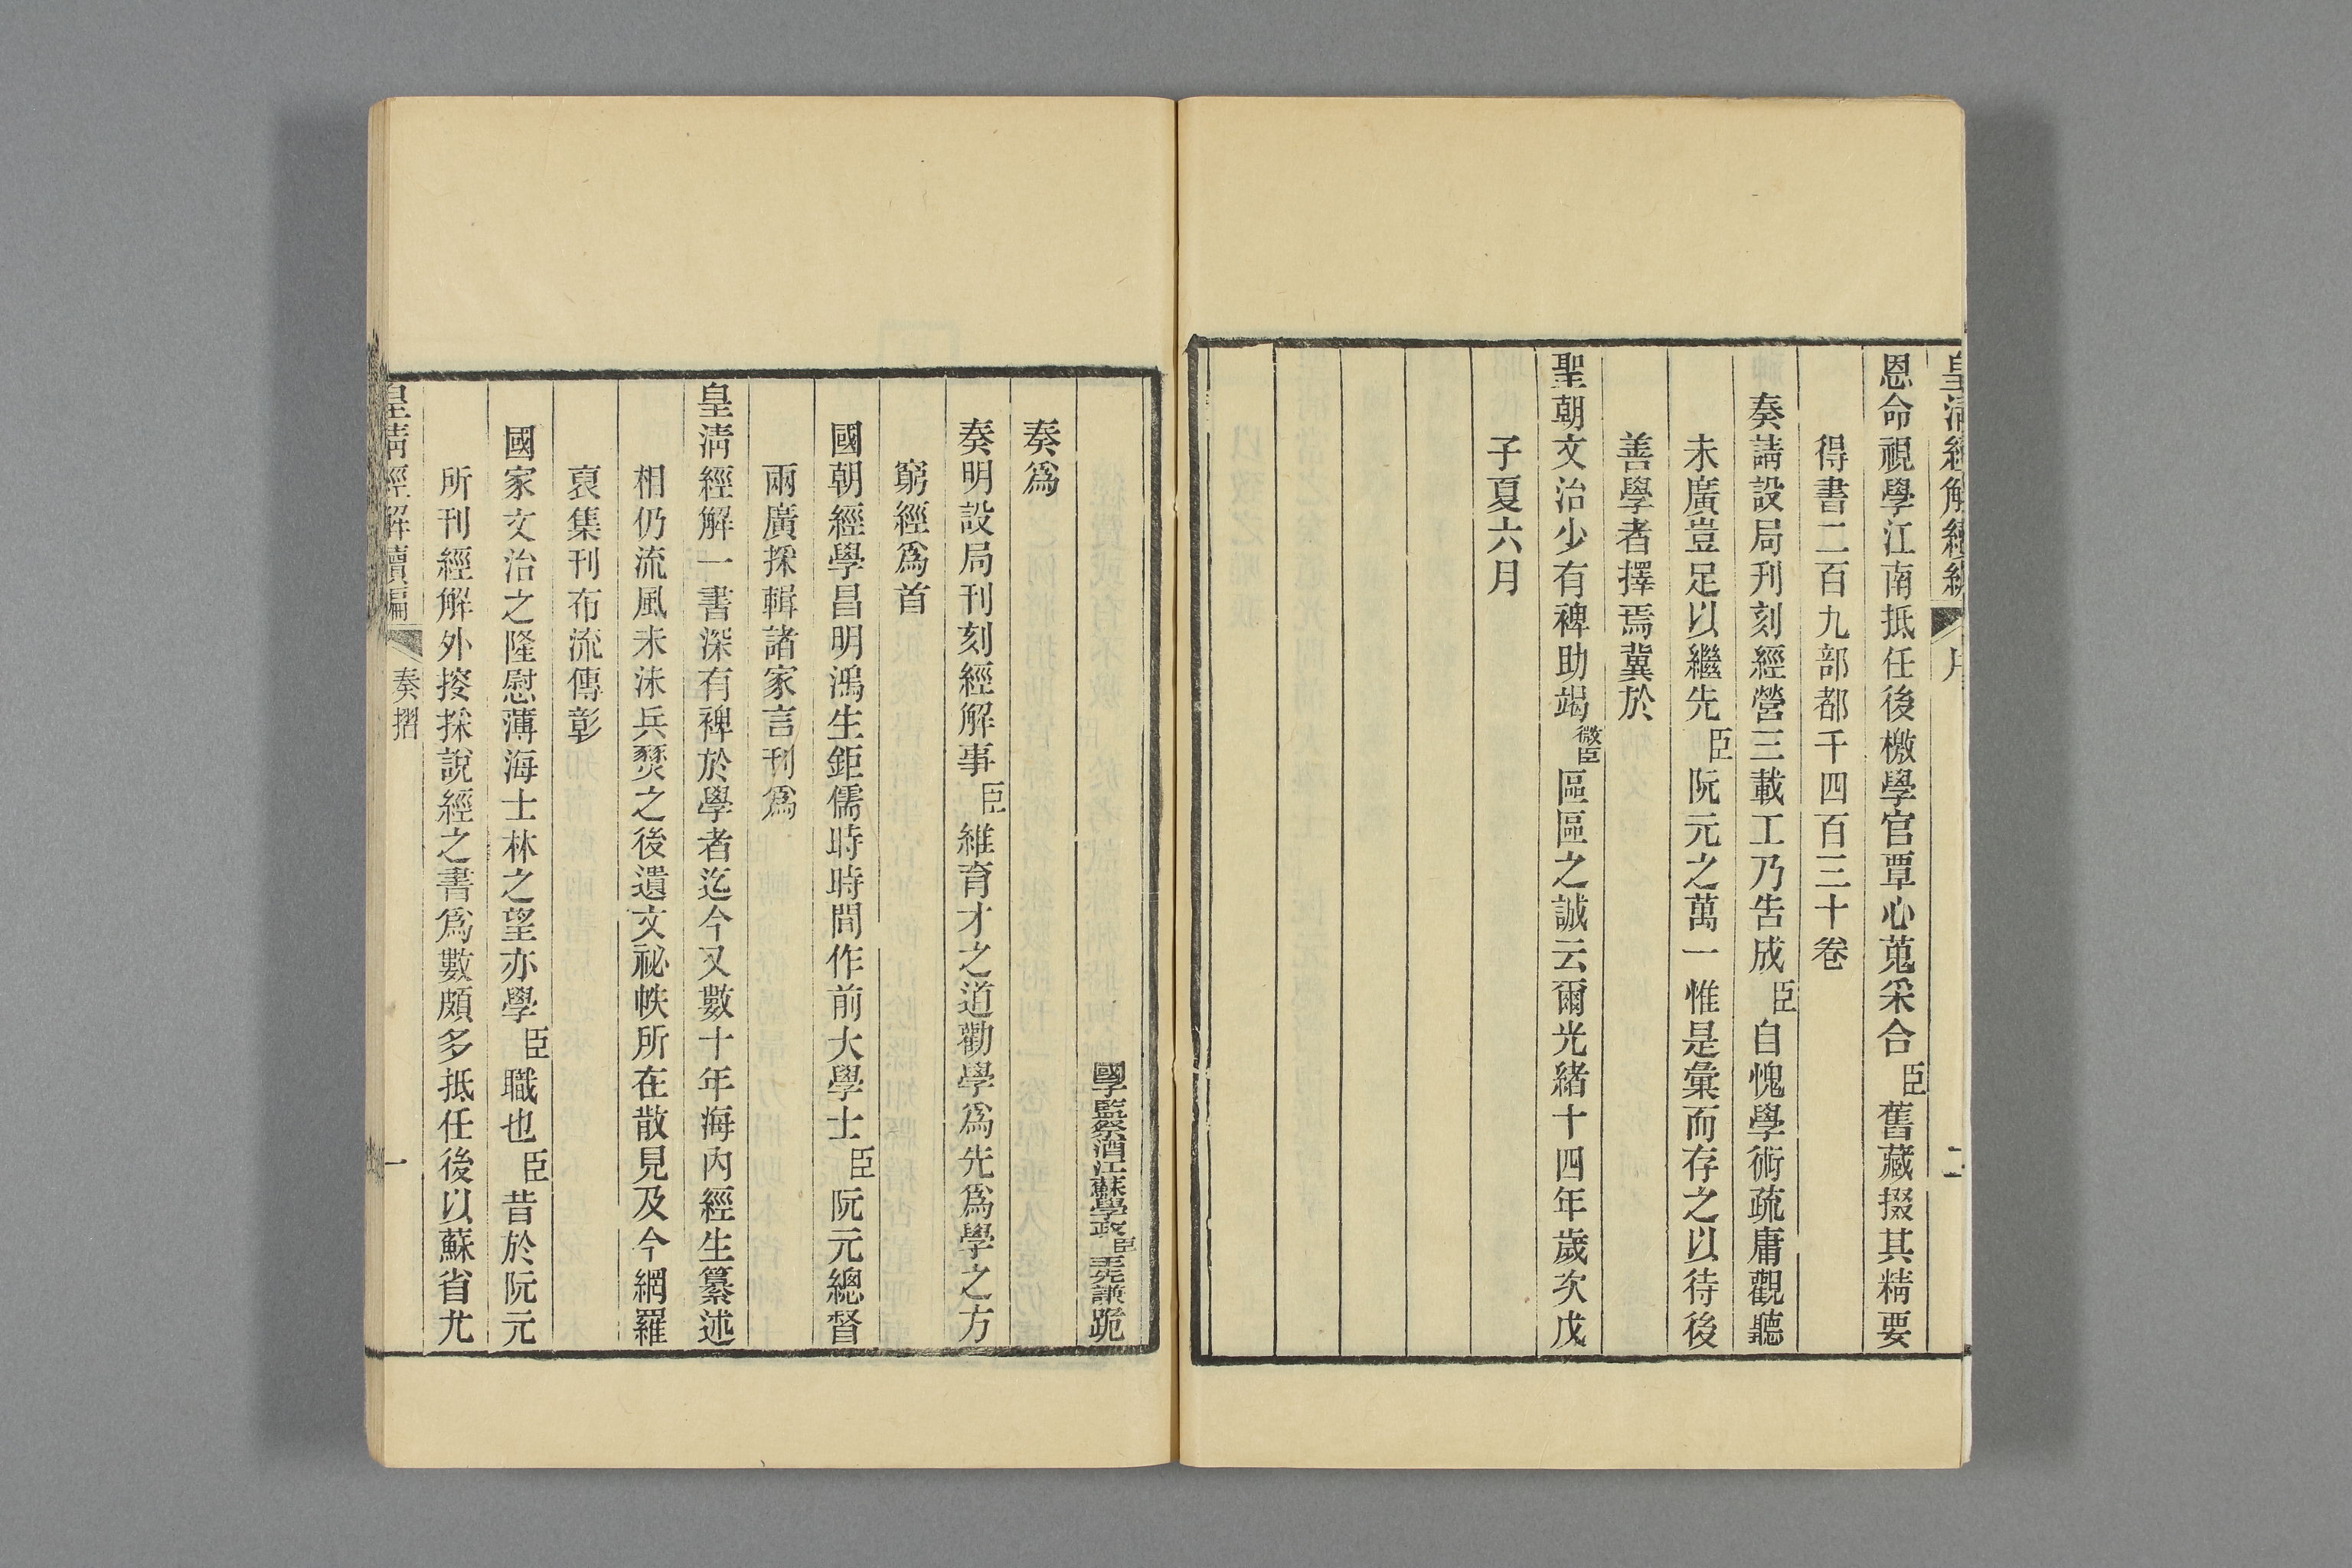 皇清經解續編 序 二
恩命視學江南抵任後檄學官覃心蒐采合臣舊藏掇其精要
得書二百九部都千四百三十卷
奏請設局刊刻經營三載工乃告成臣自愧學術疏庸觀聽
未廣豈足以繼先臣阮元之萬一惟是彙而存之以待後
善學者擇焉冀於
聖朝文治少有裨助竭微臣區區之誠云爾光緒十四年歲次戊
子夏六月
國子監祭酒江蘇學政臣王先謙跪
奏爲
奏明設局刊刻經解事臣維育才之道勸學爲先爲學之方
窮經爲首
國朝經學昌明鴻生鉅儒時時間作前大學士臣阮元總督
兩廣採輯諸家言刊爲
皇清經解一書深有裨於學者迄今又數十年海內經生纂述
相仍流風未沬兵燹之後遺文祕帙所在散見及今網羅
裒集刊布流傳彰
國家文治之隆慰薄海士林之望亦學臣職也臣昔於阮元
所刊經解外搜採說經之書爲數頗多抵任後以蘇省尤
皇清經解續編 奏摺 一